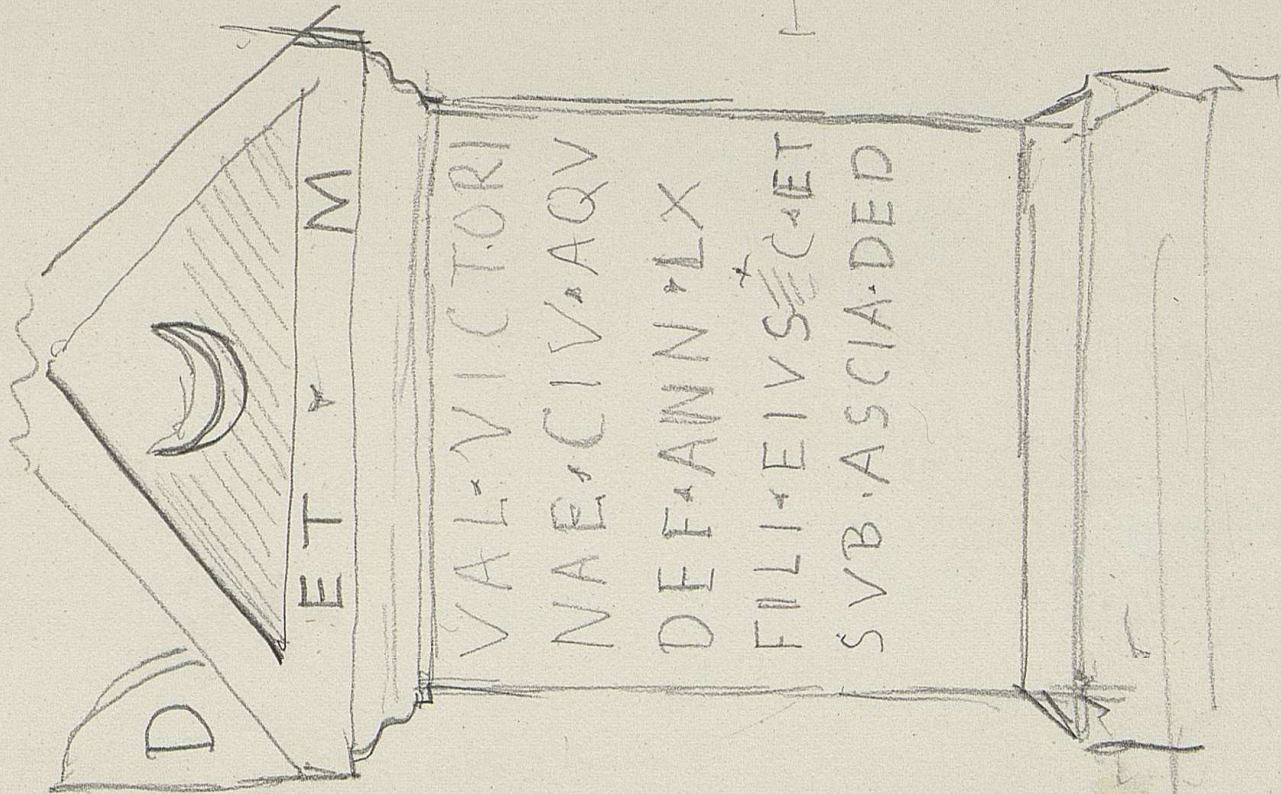 D
ET M
VAL·VICTORI
NAE·CIV·AQV
DEF·ANN·LX
FILI·EIVS C·ET
SVB·ASCIA·DED